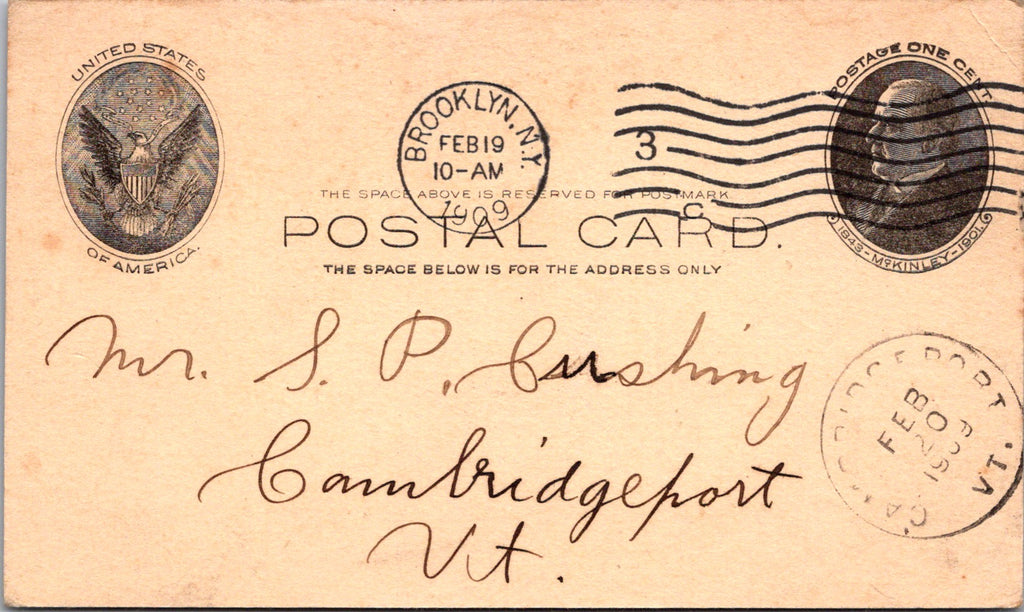 UNITED STATES
OF AMERICA.
BROOKLYN, N.Y.
FEB 19
10-AM
1909
3
C
POSTAGE ONE CENT
1843-McKINLEY-1901.
THE SPACE ABOVE IS RESERVED FOR POSTMARK
POSTAL CARD.
THE SPACE BELOW IS FOR THE ADDRESS ONLY
Mr. S. P. Cushing
Cambridgeport
Vt.
CAMBRIDGEPORT
VT.
FEB
20
1909